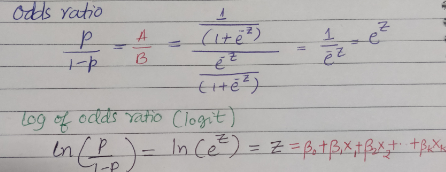 Odds ratio
p/(1-p) = A/B = (1/(1+e^-z)) / (e^-z/(1+e^-z)) = 1/e^-z = e^z
Log of odds ratio (logit)
ln(p/(1-p)) = ln(e^z) = z = β₀+β₁x₁+β₂x₂+..+βₖxₖ